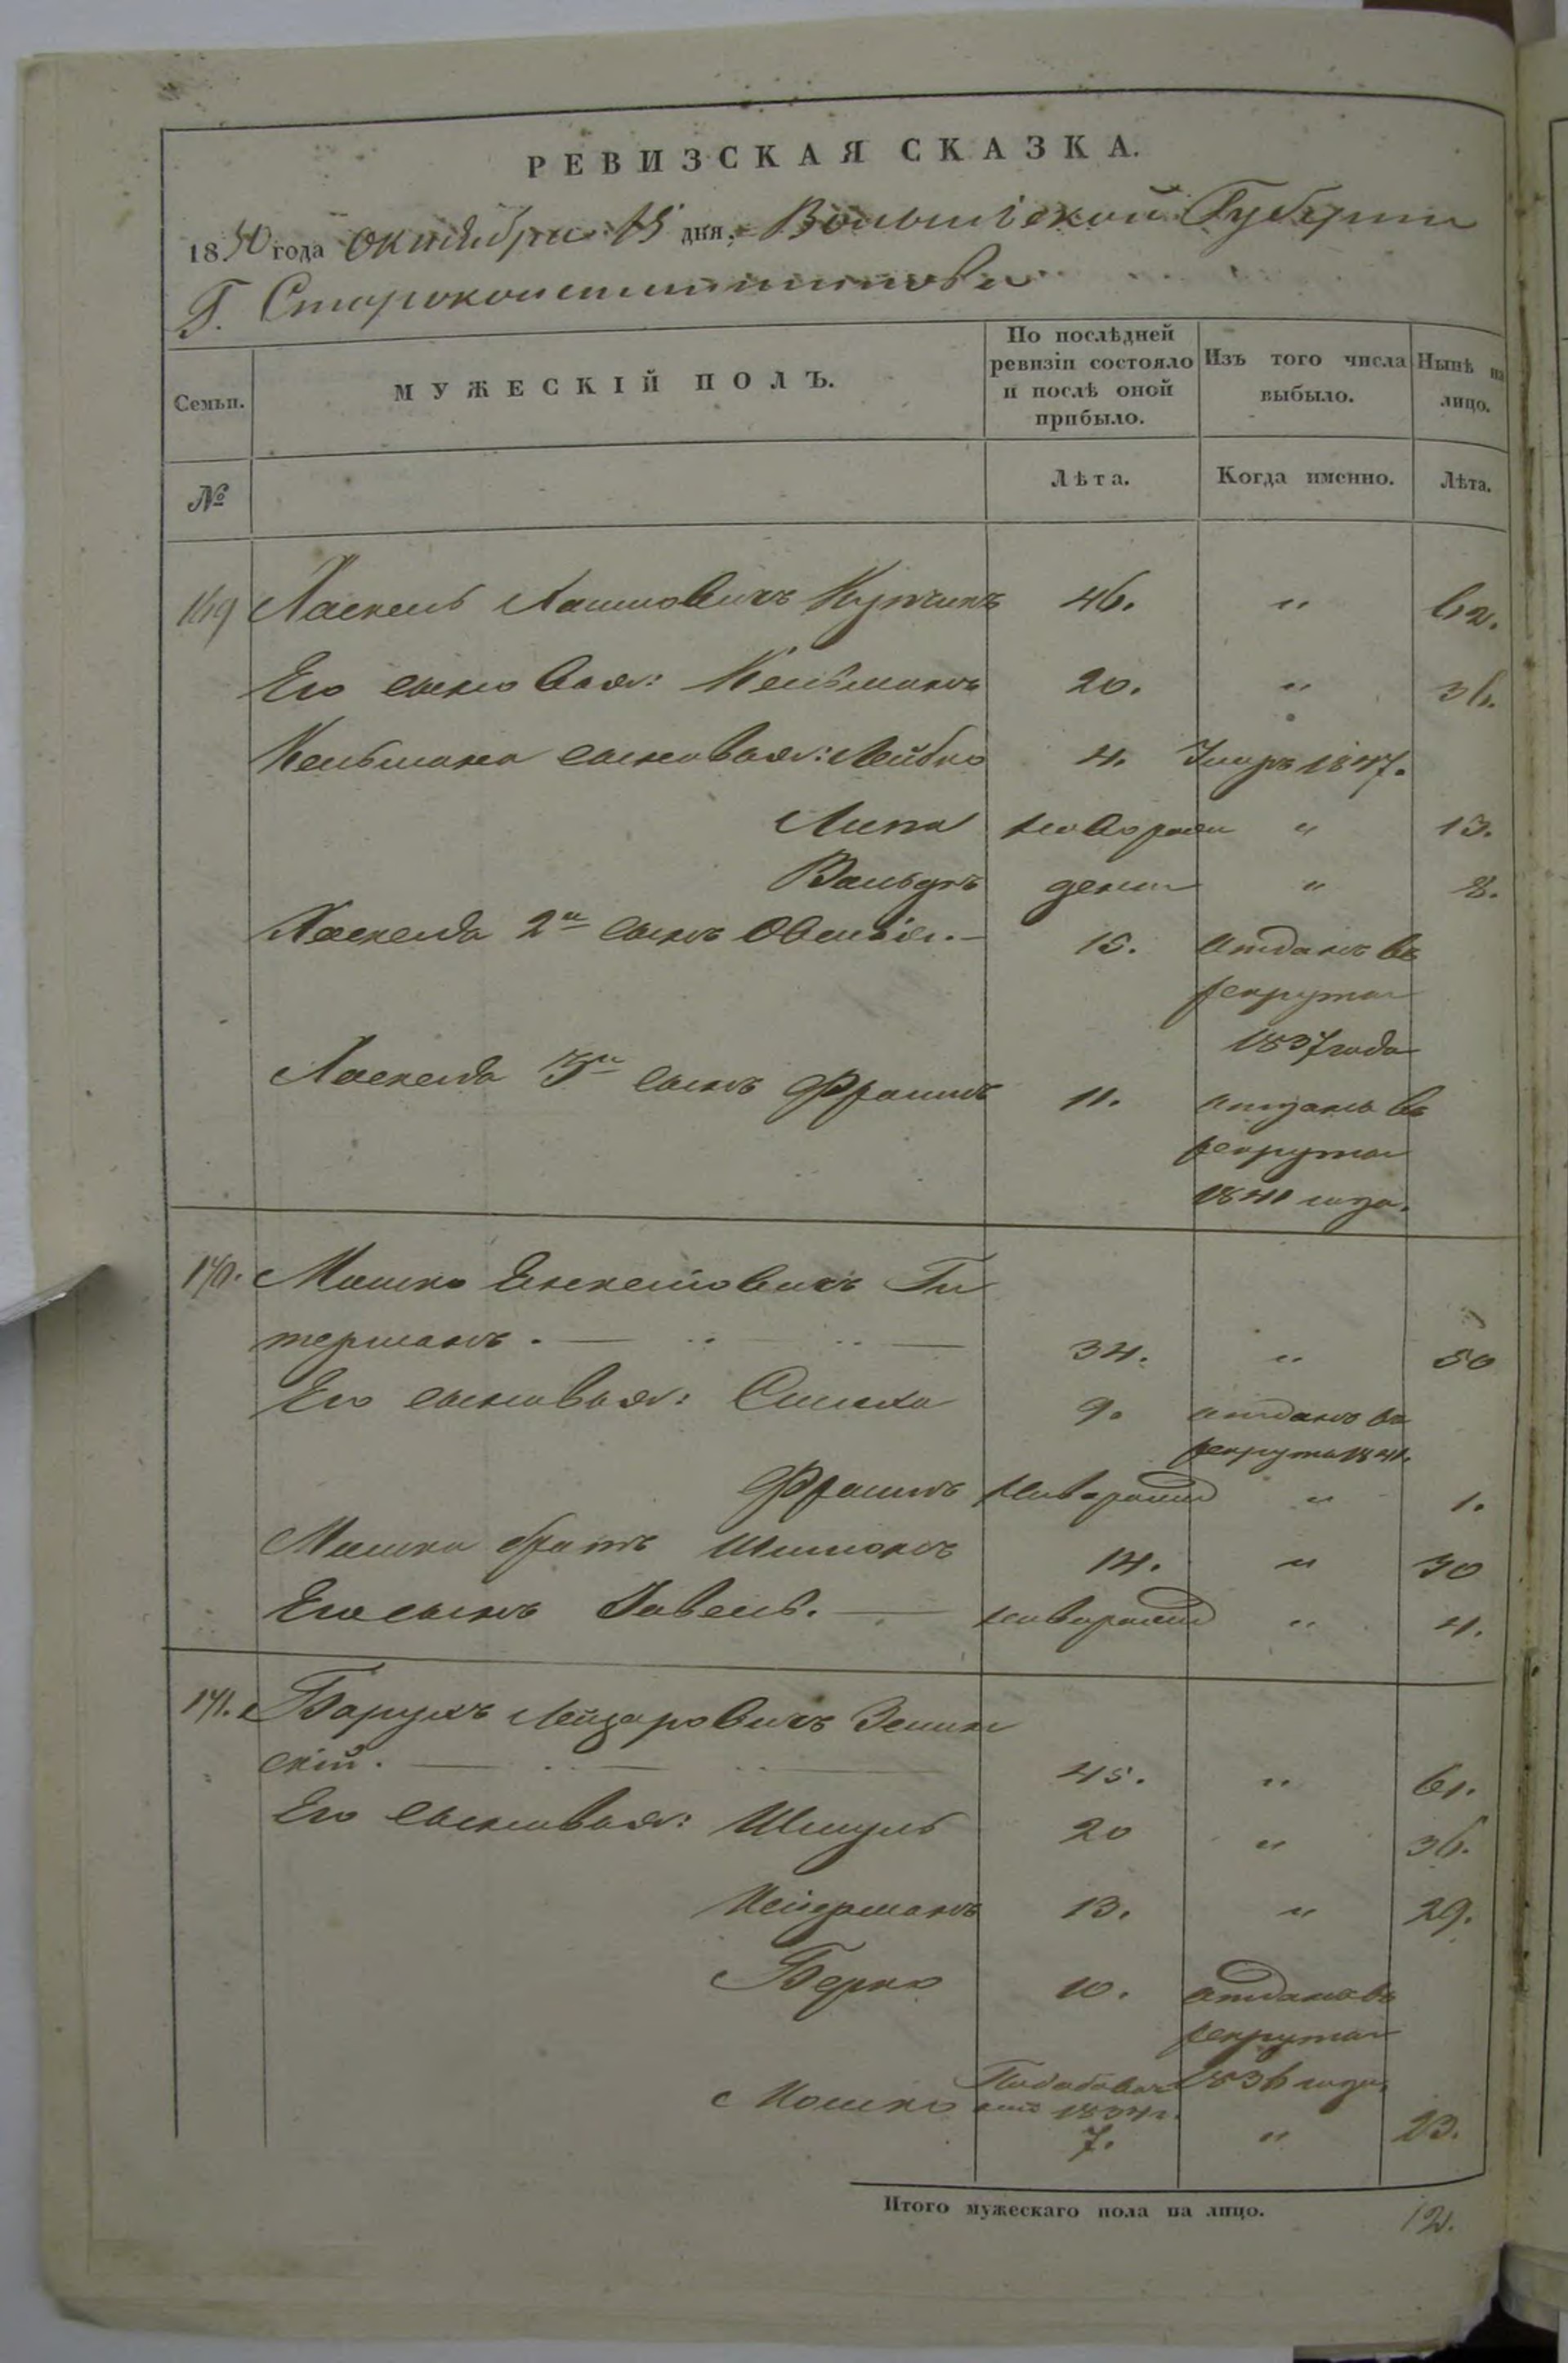 РЕВИЗСКАЯ СКАЗКА.
1850 года октября 15 дня, Волынской Губернии
Г. Староконстантинова
Семьи.
МУЖЕСКІЙ ПОЛЪ.
По послѣдней ревизіи состояло и послѣ оной прибыло.
Изъ того числа выбыло.
Нынѣ на лицо.
№
Лѣта.
Когда именно.
Лѣта.
169 Хаскель 46. " 62.
Его сыновья: Кельманъ 20. " 36.
Кельмана сыновья: Лейбко 4. Умеръ 1847.
Липа новорож "  13.
Вольфъ дены " 8.
Хаскеля 2й сынъ Овшія. — 15. отданъ въ
рекруты
1837 года
Хаскеля 3й сынъ Фроимъ 11. отданъ въ
рекруты
1841 года.
170. Мошко Ги
терманъ. — 34. " 50
Его сыновья: Симха 9. отданъ въ
рекруты 1841.
Фроимъ новорожд " 1.
Мошка братъ Шимонъ 14. " 30
Его сынъ Гавель. — новорожд " 4.
171. Борухъ Лейзоровичъ Зелин
скій. — 45. " 61.
Его сыновья: Шмуль 20 " 36.
13. " 29.
Берко 10. отданъ въ
рекруты
1836 года
Мошко 1834г.
7. " 23.
Итого мужескаго пола на лицо. 12.